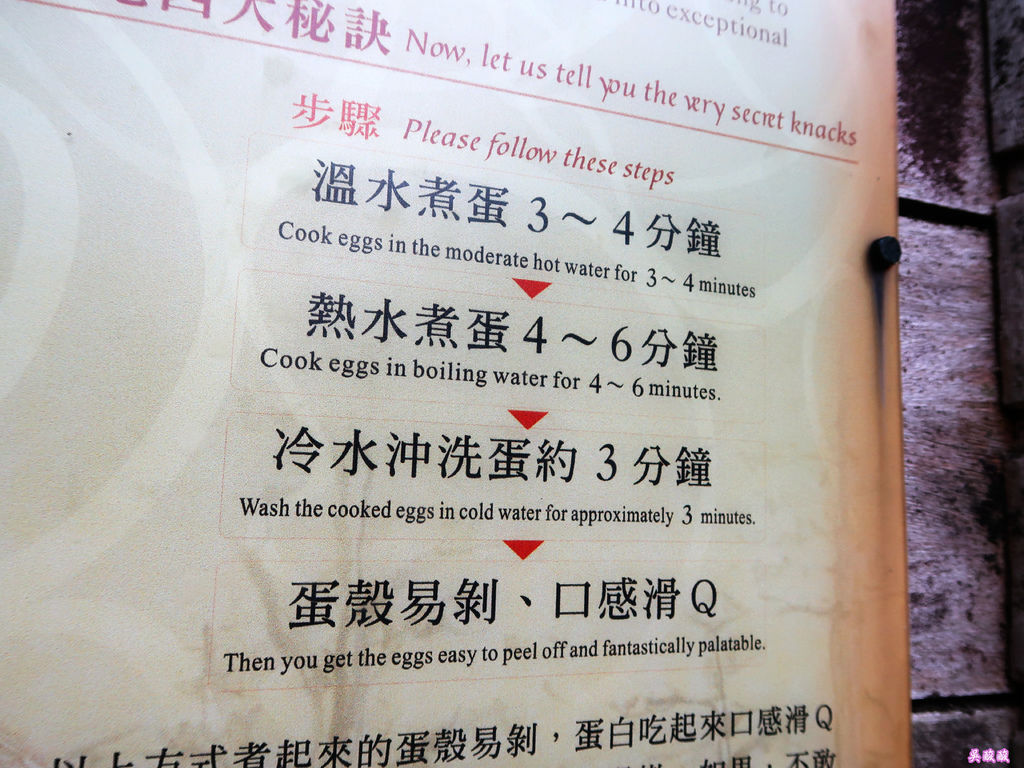 四大秘訣 Now, let us tell you the very secret knacks
into exceptional
步驟 Please follow these steps
溫水煮蛋 3～4 分鐘
Cook eggs in the moderate hot water for 3～4 minutes
熱水煮蛋 4～6 分鐘
Cook eggs in boiling water for 4～6 minutes.
冷水沖洗蛋約 3 分鐘
Wash the cooked eggs in cold water for approximately 3 minutes.
蛋殼易剝、口感滑Q
Then you get the eggs easy to peel off and fantastically palatable.
以上方式煮起來的蛋殼易剝，蛋白吃起來口感滑Q
如果，不敢
吳酸酸